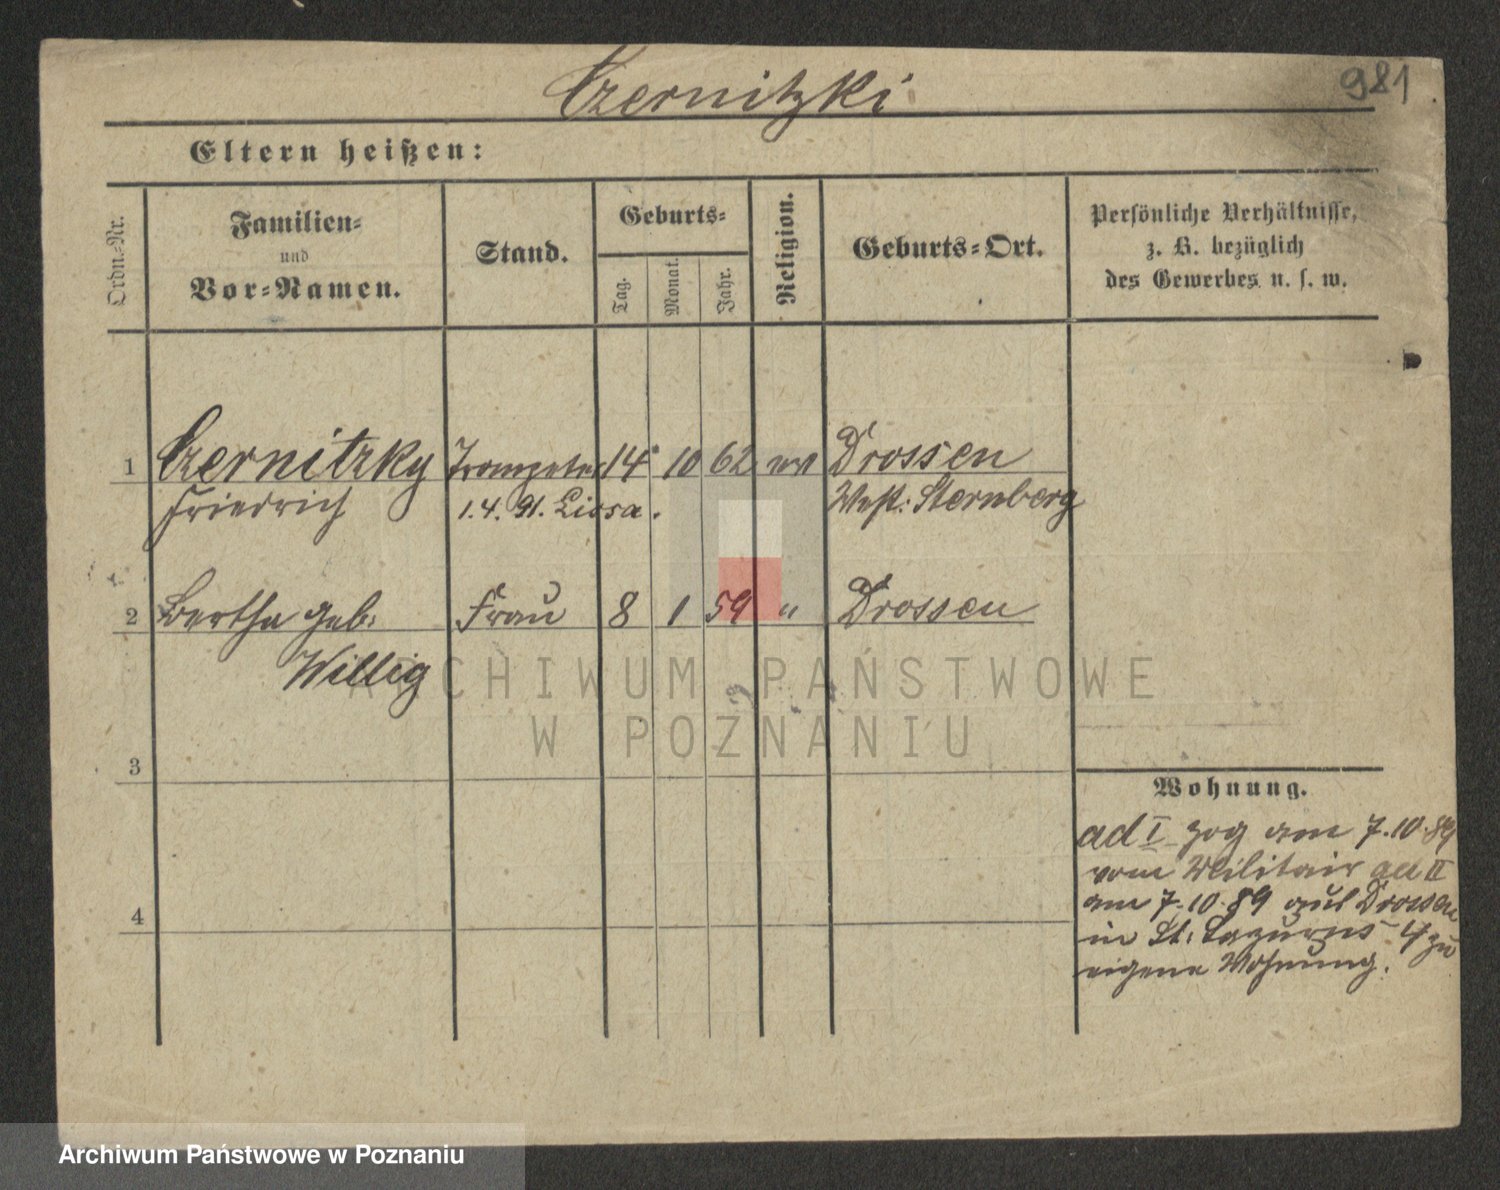 Czernitzki
981
Eltern heißen:
Ordn.-Nr.
Familien-
und
Vor-Namen.
Stand.
Geburts-
Tag.
Monat.
Jahr.
Religion.
Geburts-Ort.
Persönliche Verhältnisse,
z. B. bezüglich
des Gewerbes u. s. w.
1 Czernitzky Trompeter 14 10 62 ev Drossen
Friedrich 1.4.91. Lissa. West: Sternberg
2 Bertha geb: Frau 8 1 59 " Drossen
Willig
ARCHIWUM PAŃSTWOWE
W POZNANIU
3
Wohnung.
ad I zog am 7.10.89
vom Militair ad II
am 7.10.89 aus Drossen
in St: Lazarus 4 zu
eigene Wohnung.
4
Archiwum Państwowe w Poznaniu